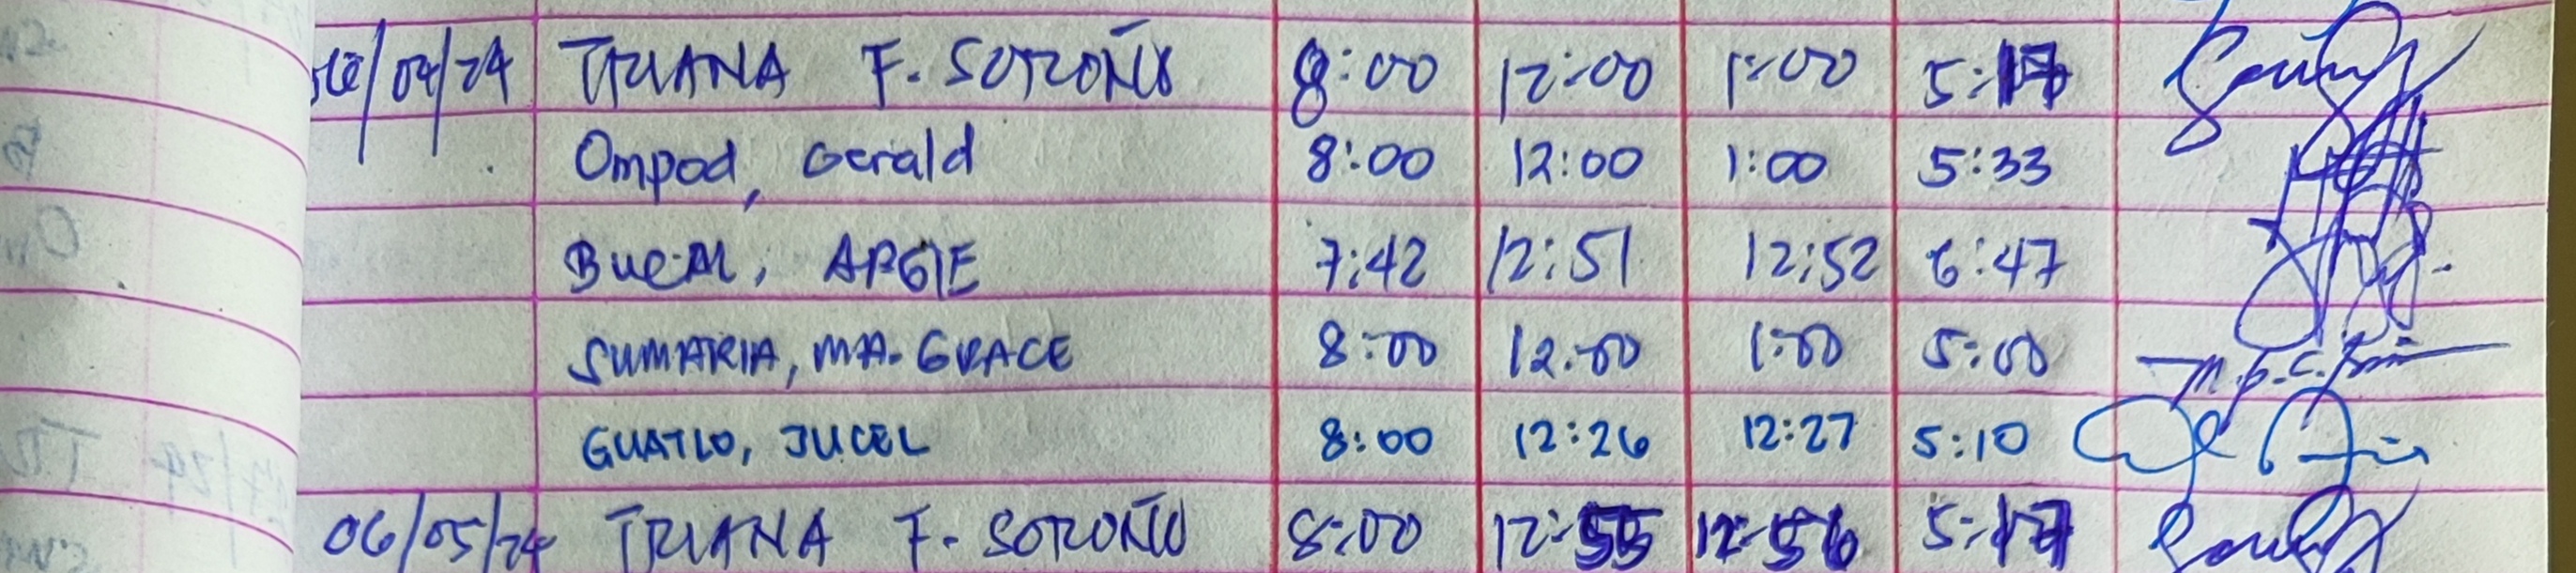 06/04/24 TRIANA F. SOROÑO 8:00 12:00 1:00 5:17
Ompod, Gerald 8:00 12:00 1:00 5:33
Bucal, ARGIE 7:42 12:51 12:52 6:47
SUMARIA, MA. GRACE 8:00 12:00 1:00 5:00
GUATLO, JUCEL 8:00 12:26 12:27 5:10
06/05/24 TRIANA F. SOROÑO 8:00 12:55 12:56 5:17